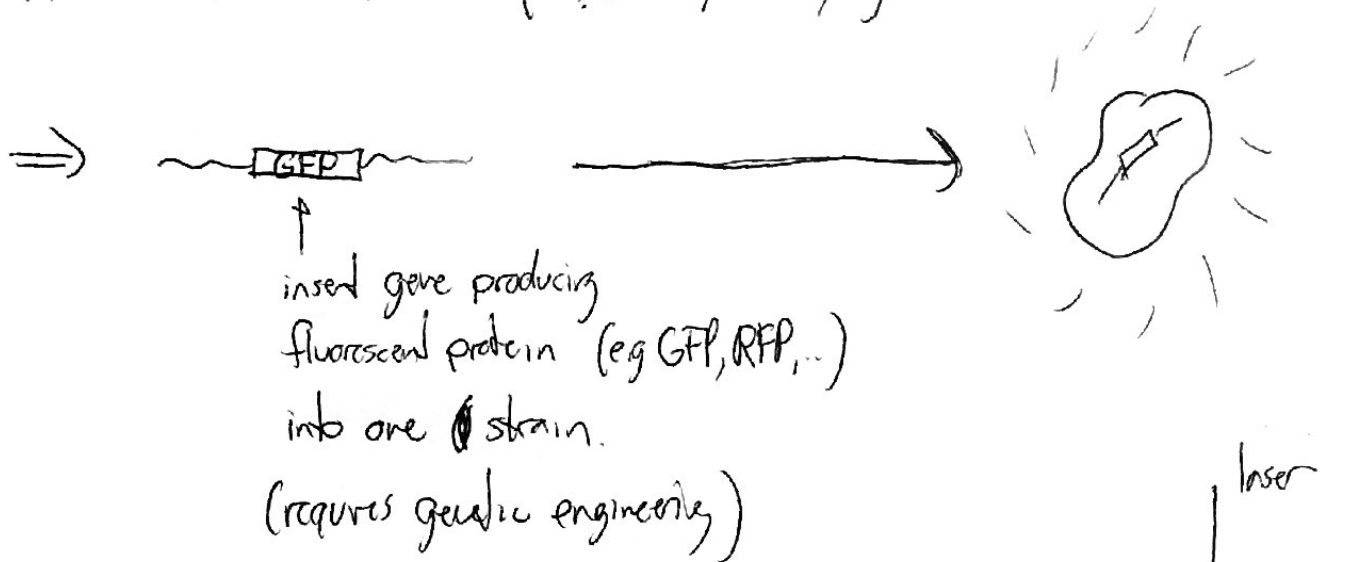 GFP
insert gene producing
fluorescent protein (eg GFP, RFP,..)
into one strain.
(requires genetic engineering)
laser